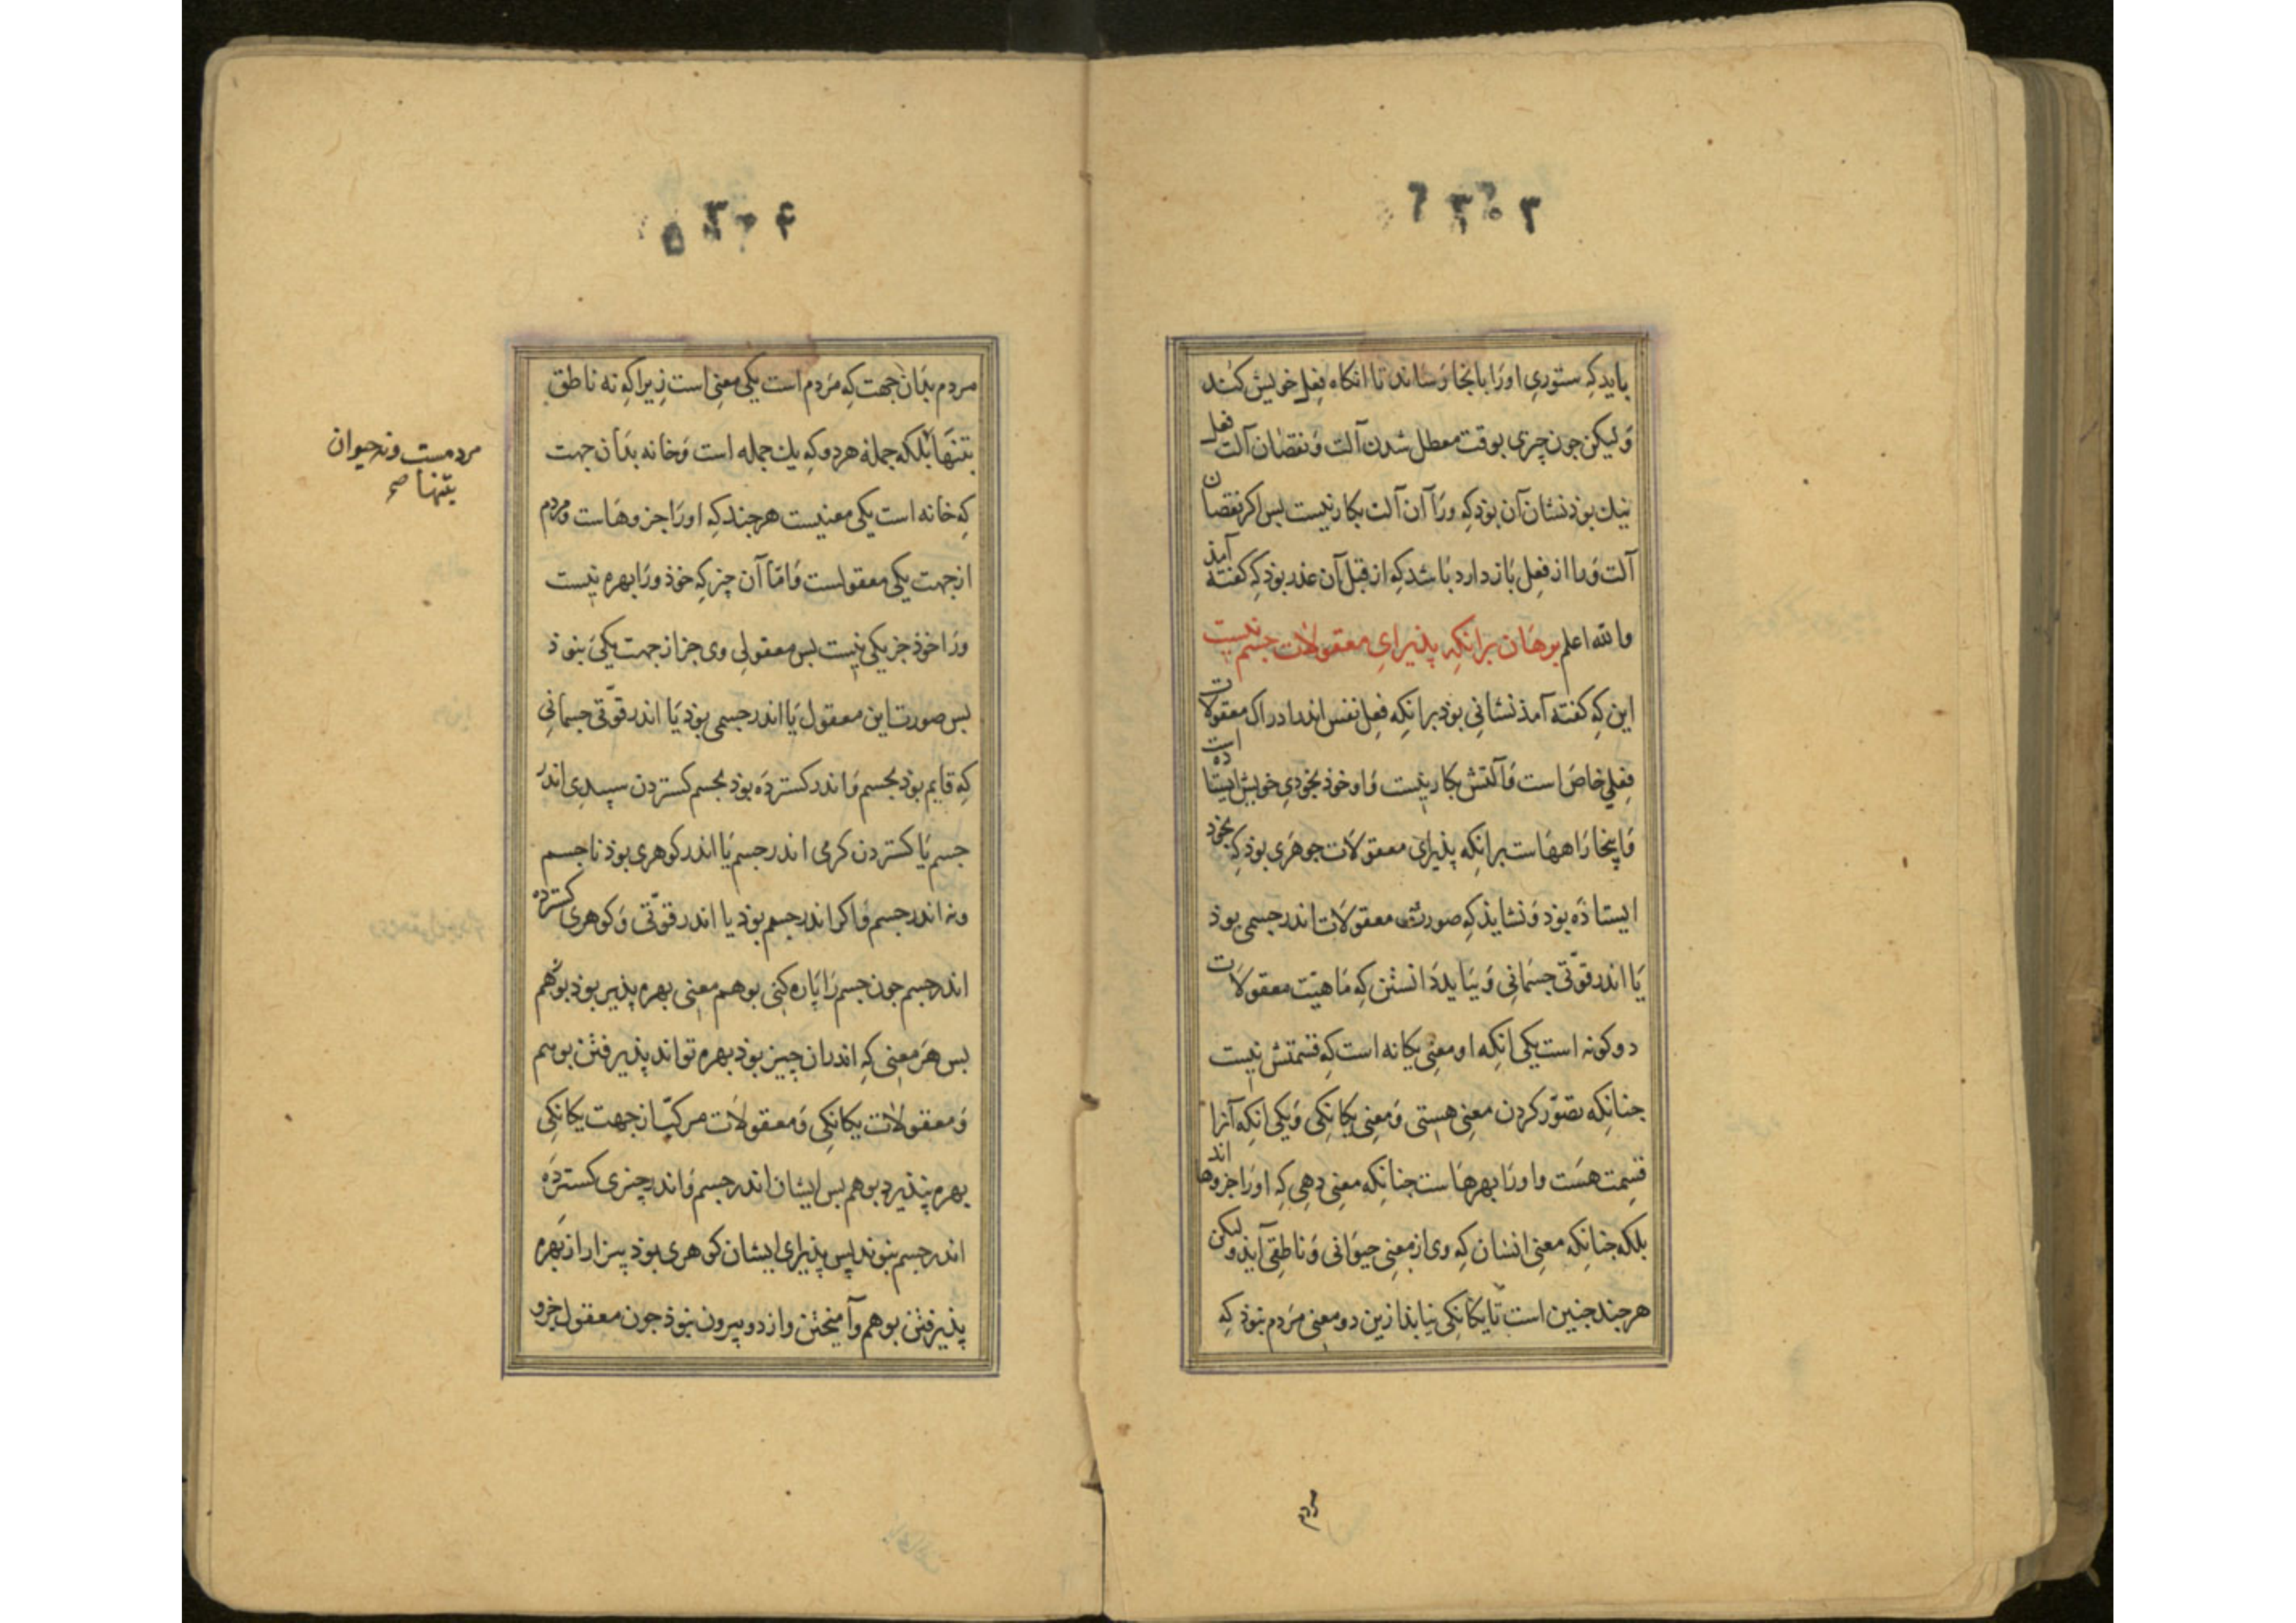 بایذ کِه ستوری اورَا بانجا رسَانذ تا انکاه فِعلِ خویش کُند
وَلیکن جون چیزی بوقت معطل شدن آلت وَنقصَان آلت فعل
نیك بوذ نشان آن بوَذ کِه ورَا آن آلت بکار نیست بس اکر نقصان
آلت وَرا از فعِل بَاز دارد بَاشد کِه از قبل آن عذر بوذ کِه کفته آمذ
والله اعلم بوهَان برانکِه پذیرایِ معقولات جسم نیست
این کِه کفته آمذ نشانی بوَذ برانکِه فعِل نفس اندر ادراك معقولات
فعِلی خاصَ است وَآلتش بکار نیست وَاو خوذ بخودیِ خویش ایستاده است
وَاینجا رَاههَاست برانکِه پذیرای معقولَات جوهَری بوذ کِه بخوذ
ایستاذَه بوَذ وَنشایذ کِه صورت معقولَات اندر جسمی بوذ
یَا اندر قوّتی جسمَانی وَبیَاید دَانستن کِه مَاهیّت معقولَات
دو کونه است یکی انکِه او معنِی یکانه است کِه قسمتش نیست
جنانکِه تصوّر کردن معنِی هستی وَمعنِی یکانکِی وَیکی انکِه آنرا
قسِمت هسَت و اورَا بهرهَاست جنانکِه معنِی دهِی کِه اورَا جزوها اند
بلکه جنانکِه معنِی انسَان کِه وی از معنِی حیوَانی وَناطقِی آیذ ولیکن
هر جند جنین است تا یکانکِی نیابذ ازین دو معنِی مَردم نبوَذ کِه
مردم
مردم بذَان جهت کِه مَردم است یکی معنِی است زیراکِه نه ناطق
بتنهَا بَلکه جملهٔ هر دو کِه یك جمله است وَخانه بذَان جهت
مردمست ونه حیوان
بتنها صح
کِه خانه است یکی معنیست هر جند کِه اورَا جزوهَاست و مردم
از جهت یکی معقولست وَامّا آن چیز کِه خوَذ ورَا بهره نیست
ورَا خوَذ جز یکی نیست بس معقولِی وی جز از جهت یکیَ نبوذ
بس صورت این معقول یَا اندر جسمی بوَذ یَا اندر قوّتی جسمانیِ
کِه قایم بوذ بجسم وَاندر کستردَه بوذ بجسم کستردن سپیدیِ اندر
جسم یَا کستردن کرمی اندر جسم یَا اندر کوهری بوذ نا جسم
ونه اندر جسم وَاکر اندر جسم بوذ یا اندر قوّتی وَکوهری کسترده
اندر جسم جون جسم رَا پاره کنی بوهم معنی بهره پذیر بوذ بوَهم
بس هَر معنِی کِه اندران چیز بوذ بهره تواند پذیرفتن بوهم
وَمعقولات یکانکِی وَمعقولاَت مرکّب از جهت یکانکِی
بهره نپذیرد بوهم بس ایشان اندر جسم وَاندر چیزی کستردَه
اندر جسم نبوند پس پذیرای ایشان کوهری بوذ بیزار از بهَره
پذیرفتن بوهم وآمیختن و از دو بیرون نبوذ جون معقول جزو